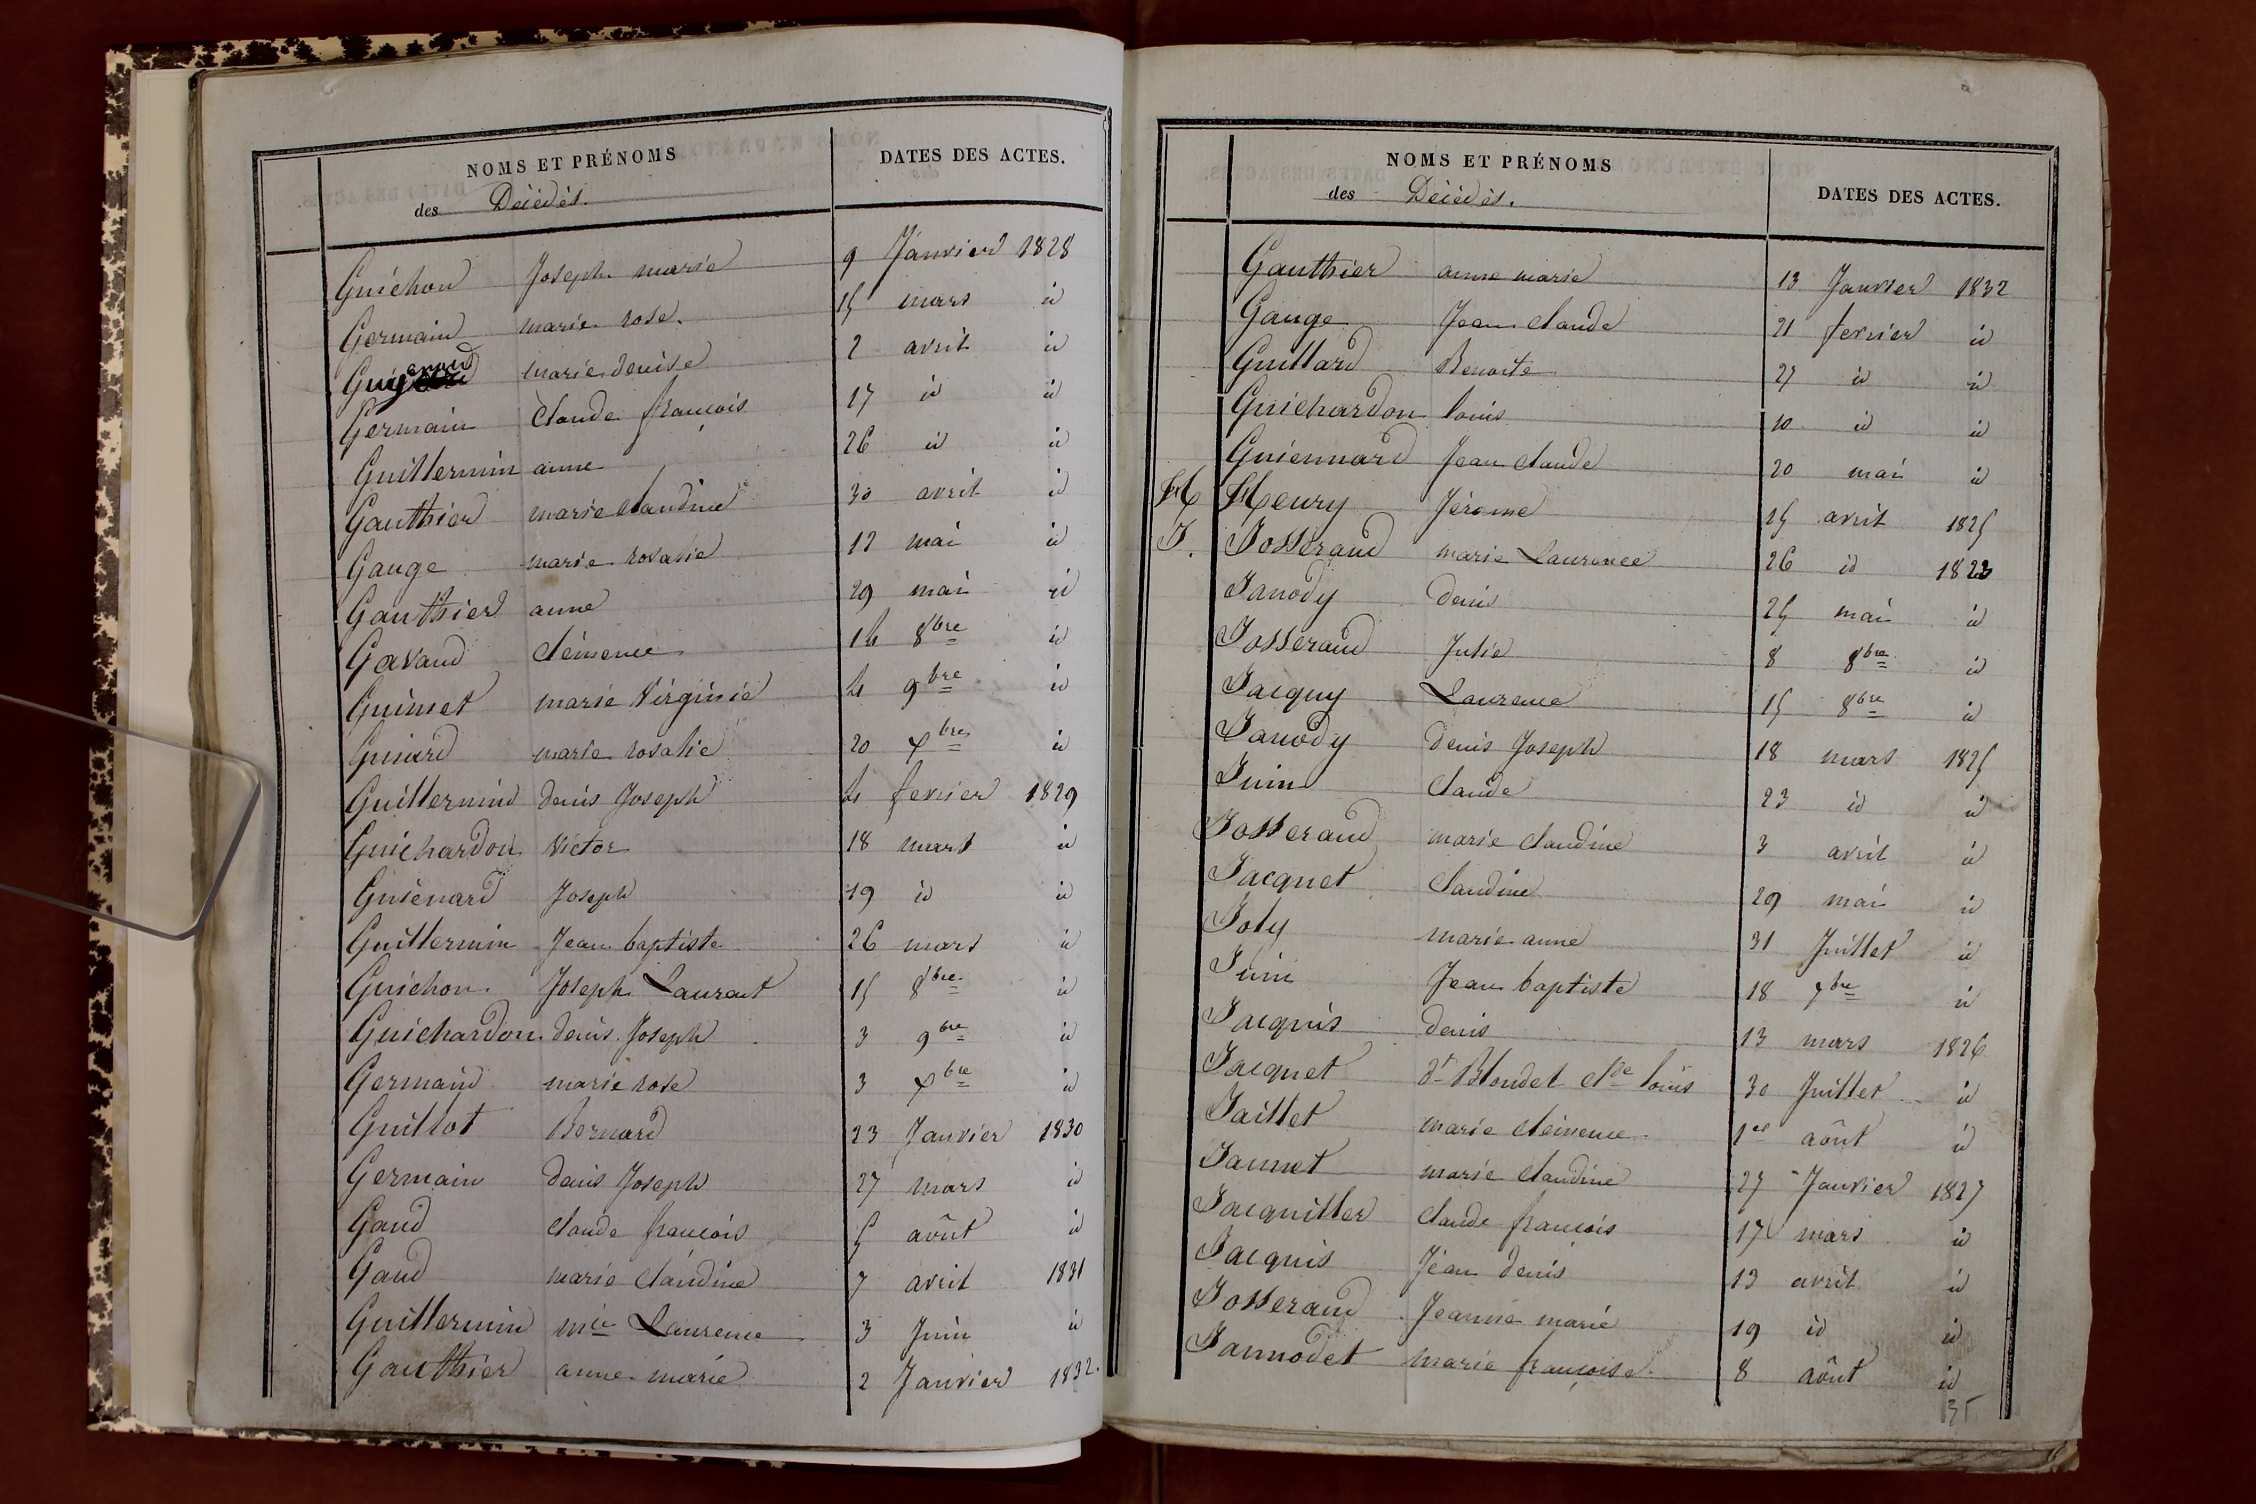 NOMS ET PRÉNOMS DATES DES ACTES.
des Décédés.
Guichon Joseph marie 9 Janvier 1828
Germain marie rose. 15 mars id
marie denise 2 avril id
Germain Claude françois 17 id id
Guillermin anne 26 id id
Gauthier marie Claudine 30 avril id
Gauge marie rosalie 12 mai id
Gauthier anne 29 mai id
Gavand Clémence 14 8bre id
Guimet marie Virginie 4 9bre id
marie rosalie 20 Xbre id
Guillermin denis Joseph 4 fevrier 1829
Guichardon Victor 18 mars id
Guienard Joseph 19 id id
Guillermin Jean baptiste 26 mars id
Guichon Joseph Laurent 15 8bre id
Guichardon denis Joseph 3 9bre id
Germain marie rose 3 Xbre id
Guillot Bernard 23 Janvier 1830
Germain denis Joseph 27 mars id
Gaud Claude françois 5 août id
Gaud marie Claudine 7 avril 1831
Guillermin mie Laurence 3 Juin id
Gauthier anne marie 2 Janvier 1832.
NOMS ET PRÉNOMS DATES DES ACTES.
des Décédés.
Gauthier anne marie 13 Janvier 1832
Gauge Jean Claude 21 fevrier id
Guillard Benoite 27 id id
Guichardon louis 10 id id
Guiennard Jean Claude 20 mai id
H Heury Jérome 15 avril 1825
J. Josserand marie Laurence 26 id 1823
Janody denis 25 mai id
Josserand Julie 8 8bre id
Jacquy Laurence 15 8bre id
Janody denis Joseph 18 mars 1825
Juin Claude 23 id id
Josserand marie Claudine 3 avril id
Jacquet Claudine 29 mai id
Joly marie anne 31 Juillet id
Juin Jean baptiste 18 7bre id
Jacquis denis 13 mars 1826
Jacquet dt Blondel Cde louis 30 Juillet id
Jaillet marie Clémence 1er août id
Jannet marie Claudine 27 Janvier 1827
Jacquiller Claude françois 17 mars id
Jacquis Jean denis 13 avril id
Josserand Jeanne marie 19 id id
Jannodet marie françoise 8 août id
35